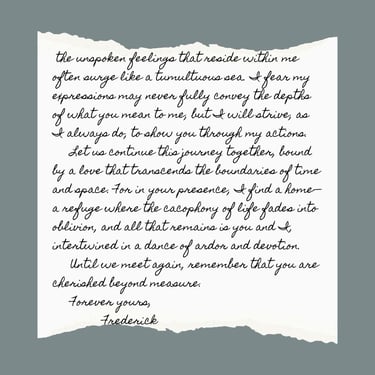 the unspoken feelings that reside within me
often surge like a tumultuous sea. I fear my
expressions may never fully convey the depths
of what you mean to me, but I will strive, as
I always do, to show you through my actions.
Let us continue this journey together, bound
by a love that transcends the boundaries of time
and space. For in your presence, I find a home—
a refuge where the cacophony of life fades into
oblivion, and all that remains is you and I,
intertwined in a dance of ardor and devotion.
Until we meet again, remember that you are
cherished beyond measure.
Forever yours,
Frederick